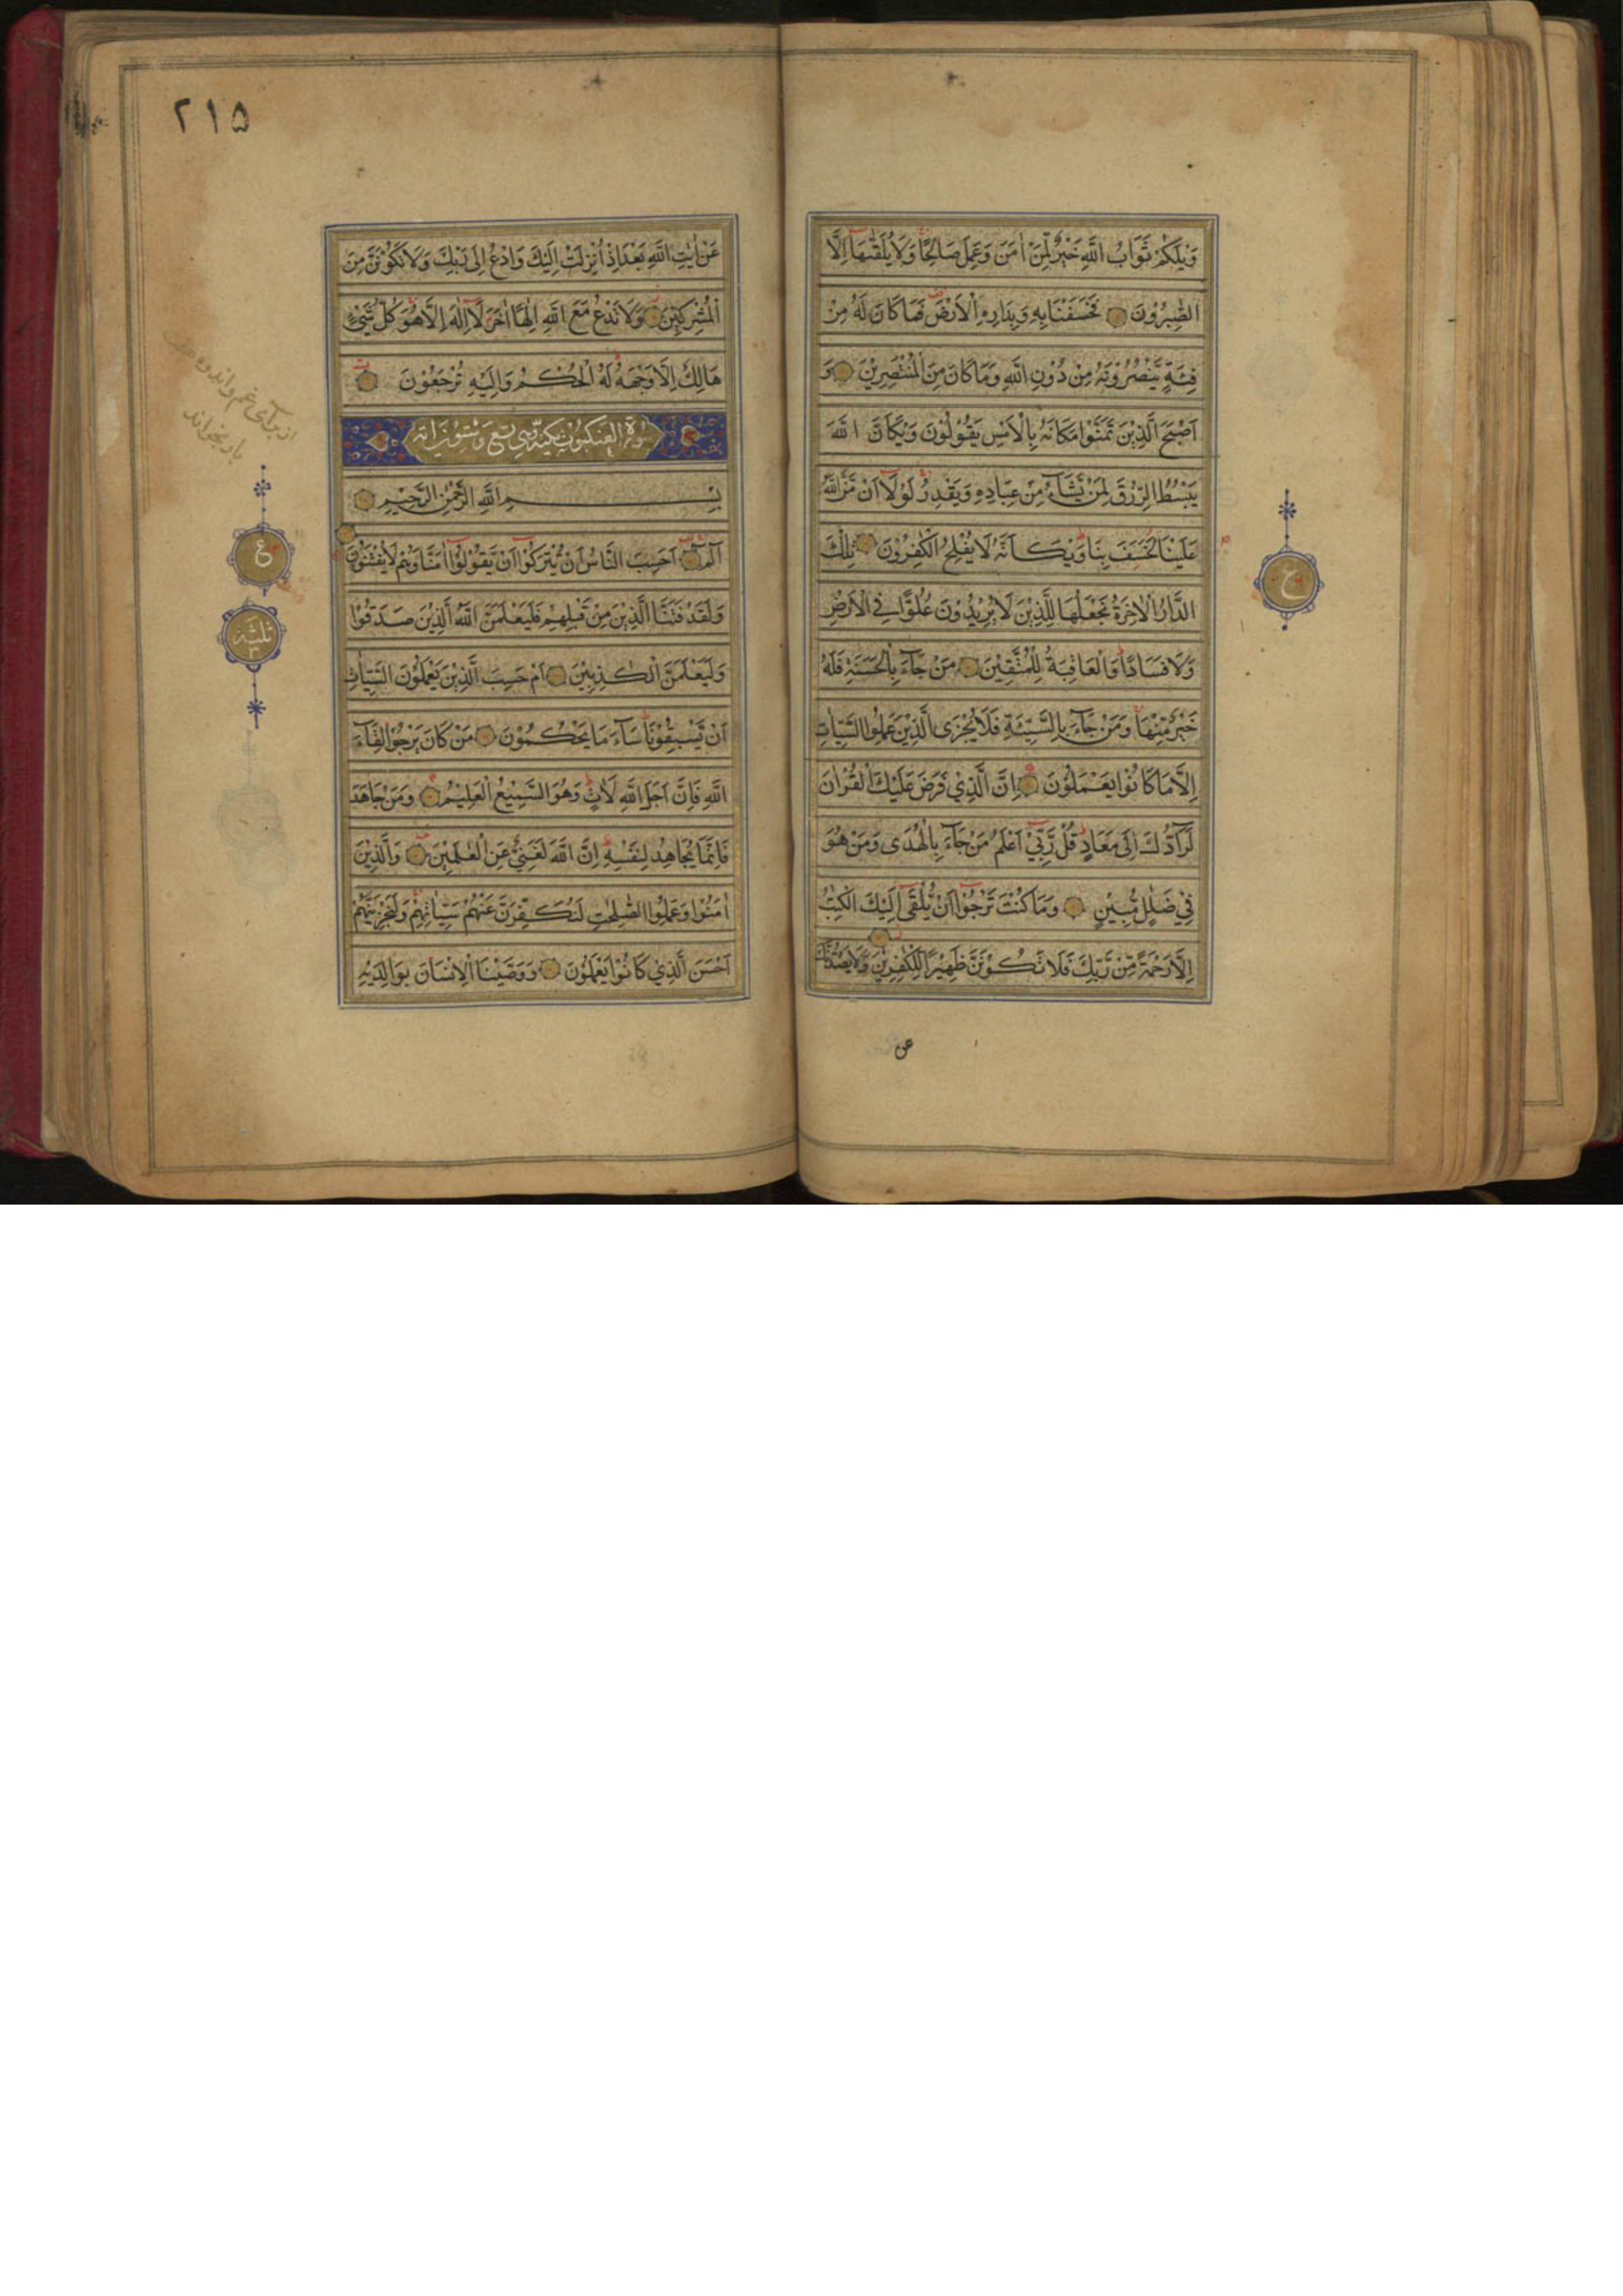 وَيْلَكُمْ ثَوَابُ اللَّهِ خَيْرٌ لِّمَنْ اٰمَنَ وَعَمِلَ صَالِحًا وَلَا يُلَقّٰىهَا اِلَّا
الصّٰبِرُوْنَ فَخَسَفْنَا بِهٖ وَبِدَارِهِ الْاَرْضَ فَمَا كَانَ لَهٗ مِنْ
فِئَةٍ يَّنْصُرُوْنَهٗ مِنْ دُوْنِ اللّٰهِ وَمَا كَانَ مِنَ الْمُنْتَصِرِيْنَ وَ
اَصْبَحَ الَّذِيْنَ تَمَنَّوْا مَكَانَهٗ بِالْاَمْسِ يَقُوْلُوْنَ وَيْكَاَنَّ اللّٰهَ
يَبْسُطُ الرِّزْقَ لِمَنْ يَّشَآءُ مِنْ عِبَادِهٖ وَيَقْدِرُ لَوْلَآ اَنْ مَّنَّ اللّٰهُ
عَلَيْنَا لَخَسَفَ بِنَا وَيْكَاَنَّهٗ لَا يُفْلِحُ الْكٰفِرُوْنَ تِلْكَ
الدَّارُ الْاٰخِرَةُ نَجْعَلُهَا لِلَّذِيْنَ لَا يُرِيْدُوْنَ عُلُوًّا فِي الْاَرْضِ
وَلَا فَسَادًا وَالْعَاقِبَةُ لِلْمُتَّقِيْنَ مَنْ جَآءَ بِالْحَسَنَةِ فَلَهٗ
خَيْرٌ مِّنْهَا وَمَنْ جَآءَ بِالسَّيِّئَةِ فَلَا يُجْزَى الَّذِيْنَ عَمِلُوا السَّيِّاٰتِ
اِلَّا مَا كَانُوْا يَعْمَلُوْنَ اِنَّ الَّذِيْ فَرَضَ عَلَيْكَ الْقُرْاٰنَ
لَرَآدُّكَ اِلٰى مَعَادٍ قُلْ رَّبِّيْ اَعْلَمُ مَنْ جَآءَ بِالْهُدٰى وَمَنْ هُوَ
فِيْ ضَلٰلٍ مُّبِيْنٍ وَمَا كُنْتَ تَرْجُوْا اَنْ يُّلْقٰى اِلَيْكَ الْكِتٰبُ
اِلَّا رَحْمَةً مِّنْ رَّبِّكَ فَلَا تَكُوْنَنَّ ظَهِيْرًا لِّلْكٰفِرِيْنَ وَلَا يَصُدُّنَّكَ
عن
ع
۲۱۵
عَنْ اٰيٰتِ اللّٰهِ بَعْدَ اِذْ اُنْزِلَتْ اِلَيْكَ وَادْعُ اِلٰى رَبِّكَ وَلَا تَكُوْنَنَّ مِنَ
الْمُشْرِكِيْنَ وَلَا تَدْعُ مَعَ اللّٰهِ اِلٰهًا اٰخَرَ لَآ اِلٰهَ اِلَّا هُوَ كُلُّ شَيْءٍ
هَالِكٌ اِلَّا وَجْهَهٗ لَهُ الْحُكْمُ وَاِلَيْهِ تُرْجَعُوْنَ
سورة العنكبوت مكية وهي تسع وستون اية
بِسْمِ اللّٰهِ الرَّحْمٰنِ الرَّحِيْمِ
الٓمٓ اَحَسِبَ النَّاسُ اَنْ يُّتْرَكُوْا اَنْ يَّقُوْلُوْا اٰمَنَّا وَهُمْ لَا يُفْتَنُوْنَ
وَلَقَدْ فَتَنَّا الَّذِيْنَ مِنْ قَبْلِهِمْ فَلَيَعْلَمَنَّ اللّٰهُ الَّذِيْنَ صَدَقُوْا
وَلَيَعْلَمَنَّ الْكٰذِبِيْنَ اَمْ حَسِبَ الَّذِيْنَ يَعْمَلُوْنَ السَّيِّاٰتِ
اَنْ يَّسْبِقُوْنَا سَآءَ مَا يَحْكُمُوْنَ مَنْ كَانَ يَرْجُوْا لِقَآءَ
اللّٰهِ فَاِنَّ اَجَلَ اللّٰهِ لَاٰتٍ وَهُوَ السَّمِيْعُ الْعَلِيْمُ وَمَنْ جَاهَدَ
فَاِنَّمَا يُجَاهِدُ لِنَفْسِهٖ اِنَّ اللّٰهَ لَغَنِيٌّ عَنِ الْعٰلَمِيْنَ وَالَّذِيْنَ
اٰمَنُوْا وَعَمِلُوا الصّٰلِحٰتِ لَنُكَفِّرَنَّ عَنْهُمْ سَيِّاٰتِهِمْ وَلَنَجْزِيَنَّهُمْ
اَحْسَنَ الَّذِيْ كَانُوْا يَعْمَلُوْنَ وَوَصَّيْنَا الْاِنْسَانَ بِوَالِدَيْهِ
از برای غم و اندوه
بار بخواند
ع
ثلثة